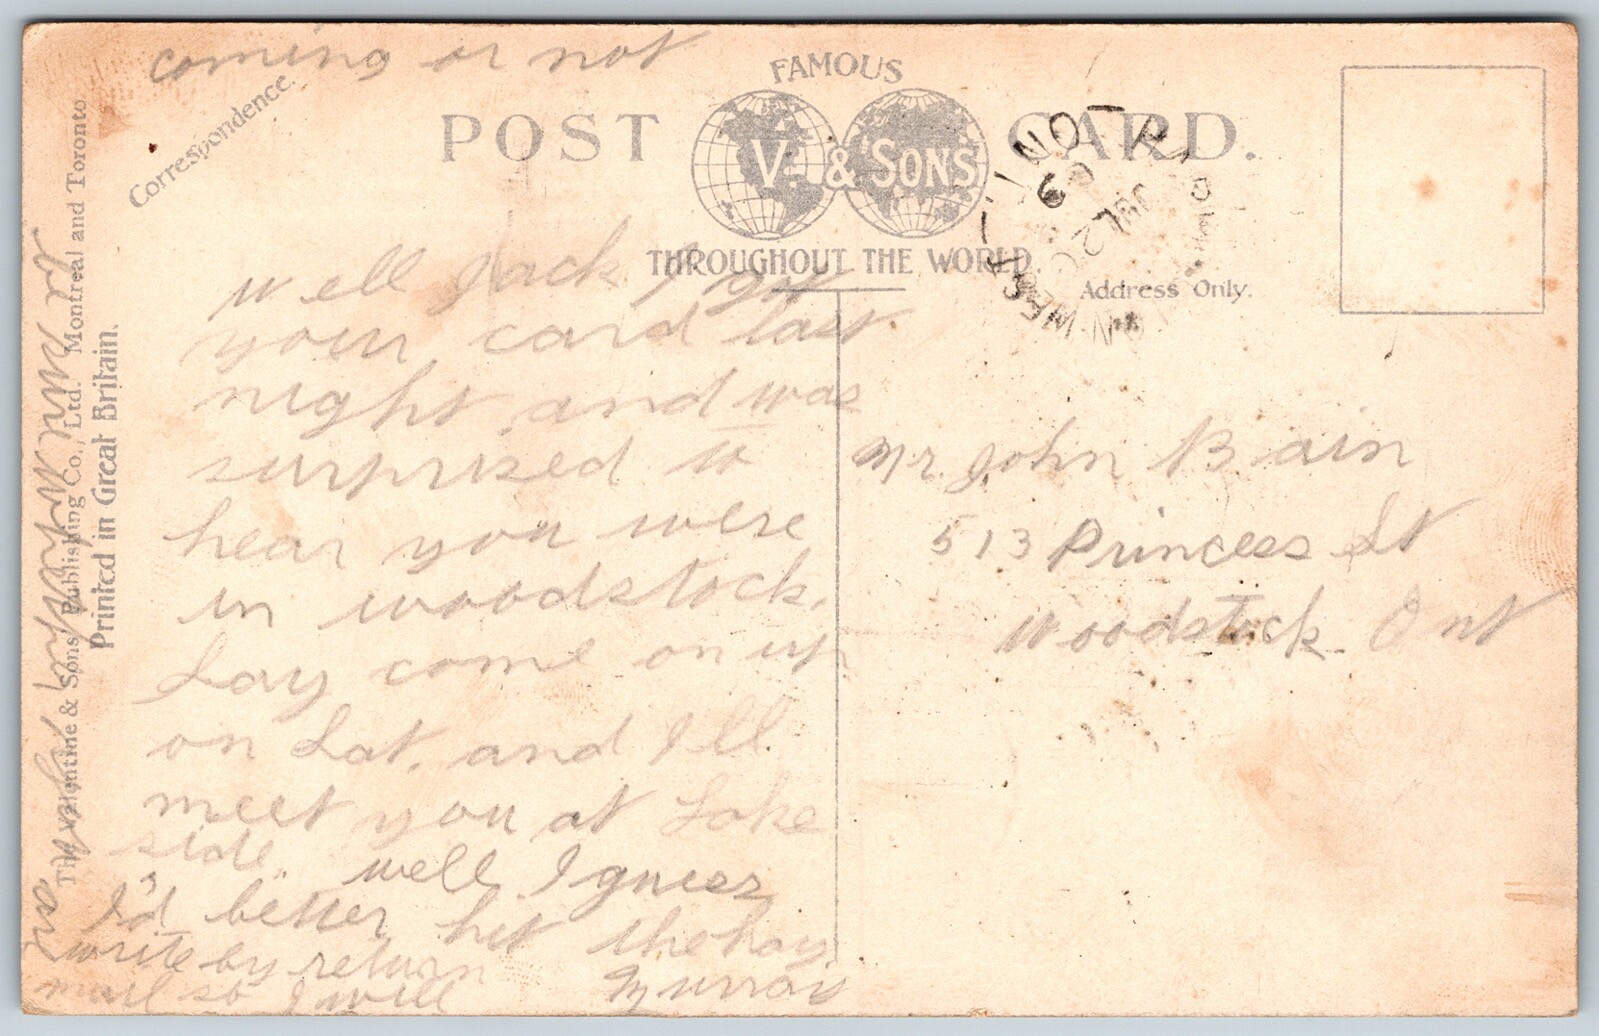 coming or not
Correspondence.
FAMOUS
POST CARD.
V. & SONS
THROUGHOUT THE WORLD.
Address Only.
The Valentine & Sons Publishing Co., Ltd. Montreal and Toronto
Printed in Great Britain.
Well Jack I got
your card last
night and was
surprised to
hear you were
in woodstock.
Say come on up
on Sat. and I'll
meet you at Lake
side. well I guess
I'd better hit the hay
write by return
mail so I will
Murray
Mr John Bain
513 Princess St
Woodstock Ont
ONT
JUL 2
09